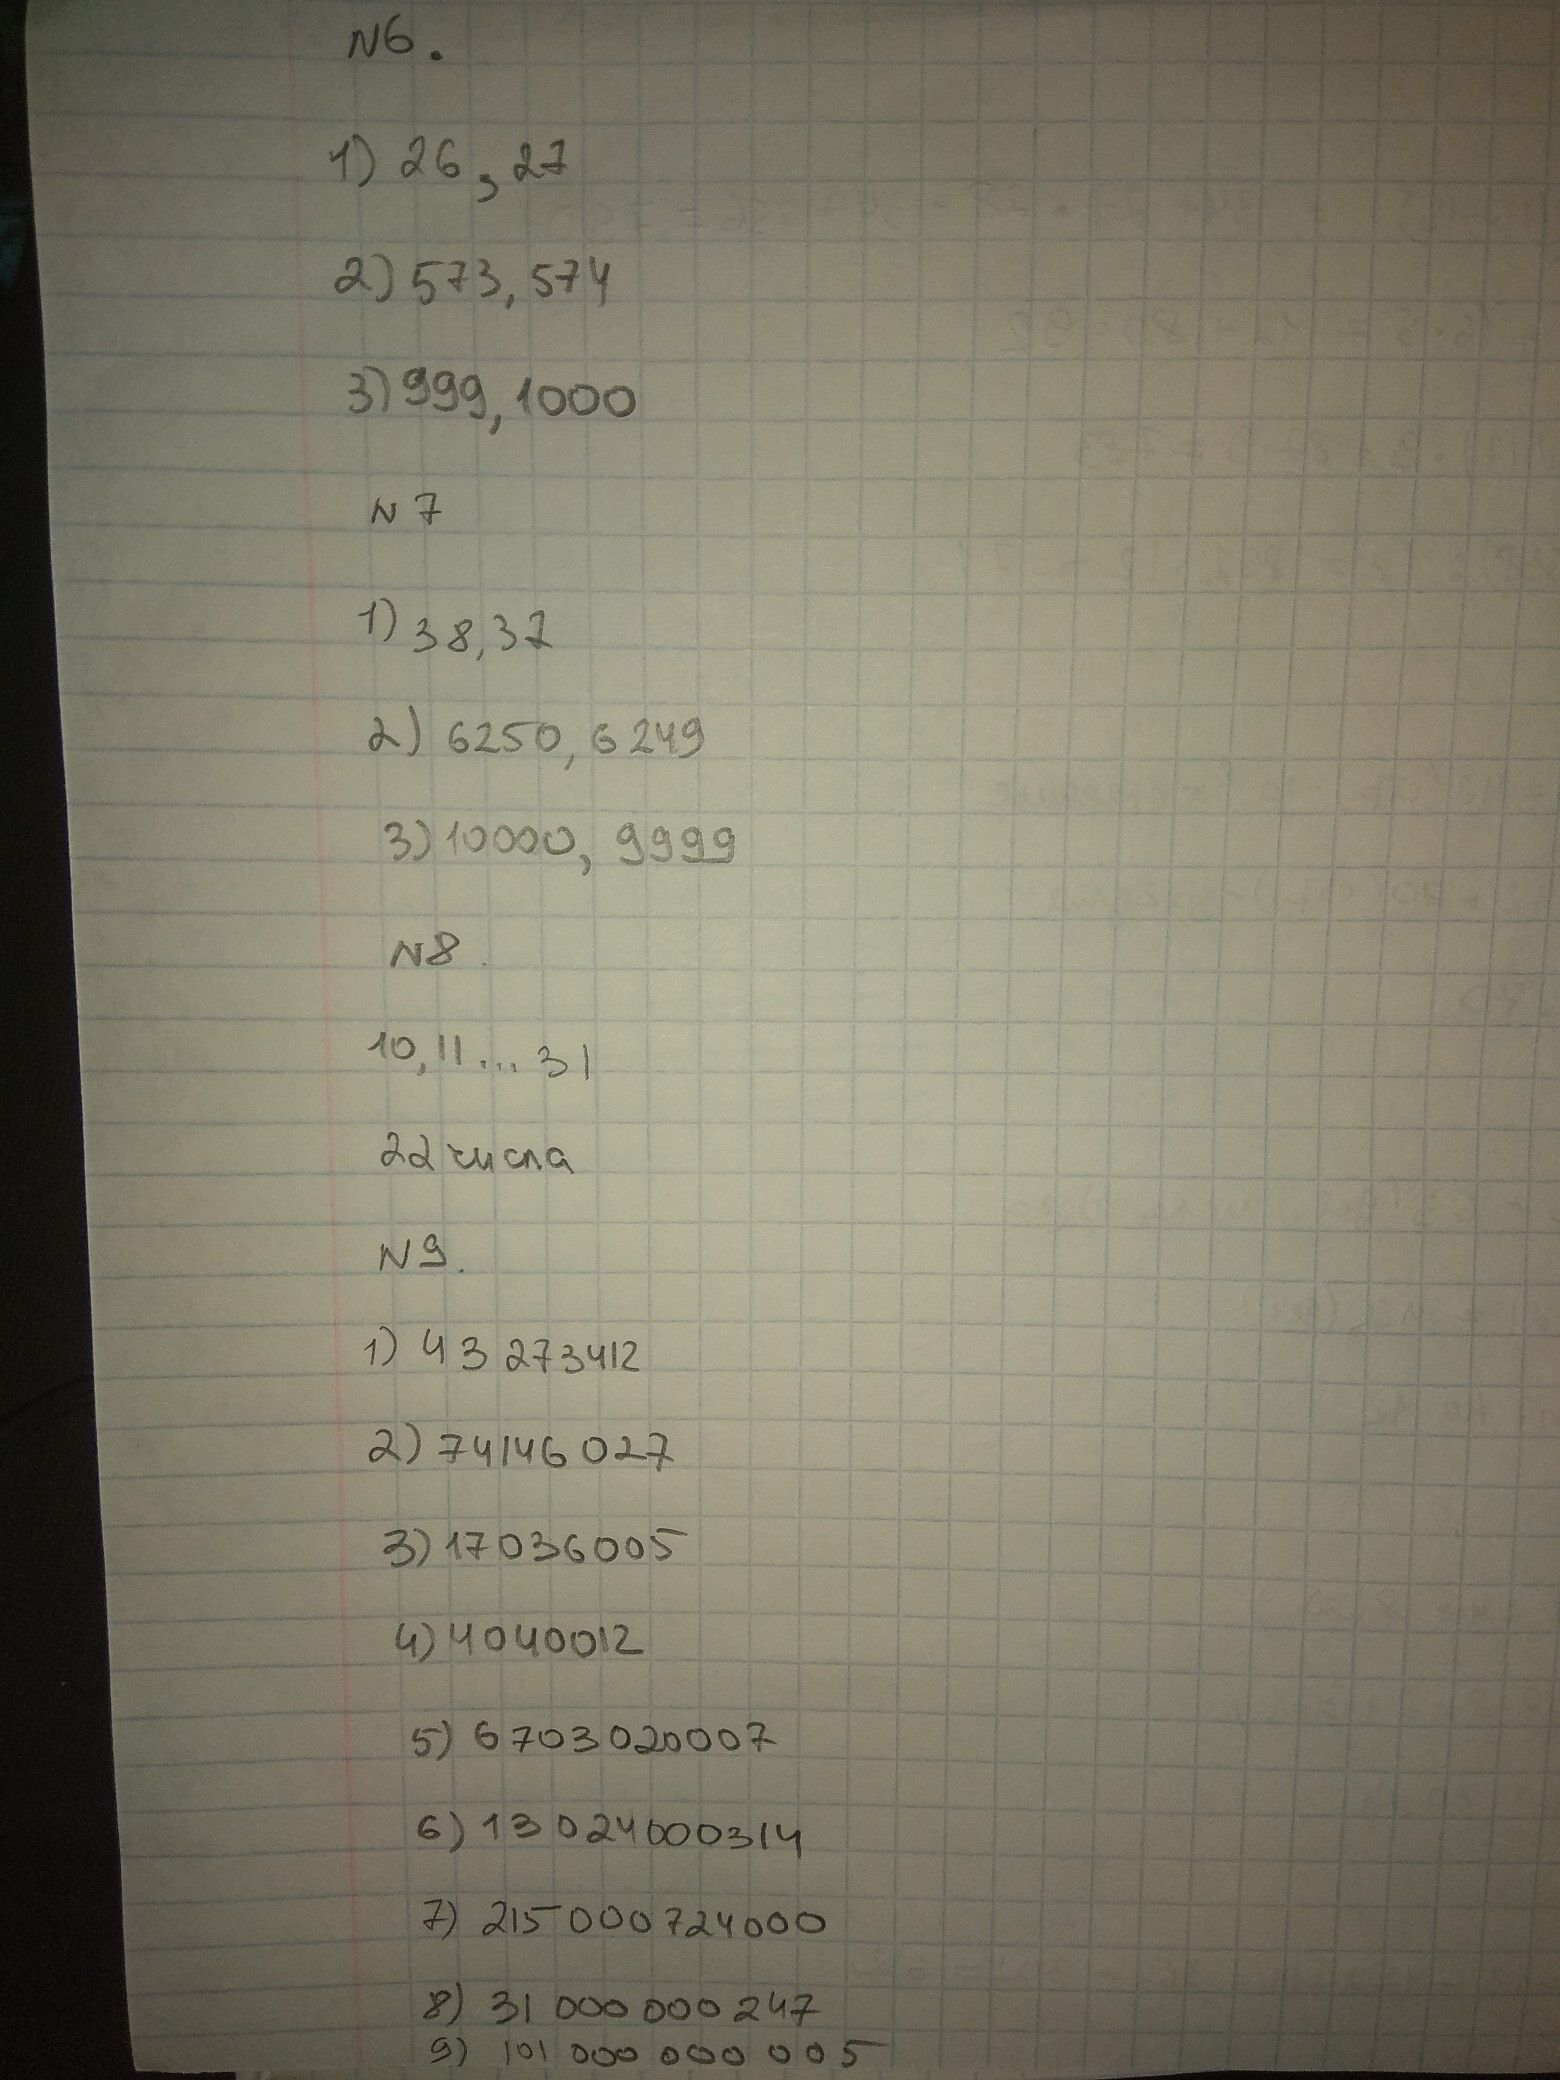 N6.
1) 26, 27
2) 573, 574
3) 999, 1000
N7
1) 38, 37
2) 6250, 6249
3) 10000, 9999
N8.
10, 11 ... 31
22 числа
N9.
1) 43 273412
2) 74146 027
3) 17036005
4) 4040012
5) 6703020007
6) 13 024000314
7) 215 000 724000
8) 31 000 000 247
9) 101 000 000 005